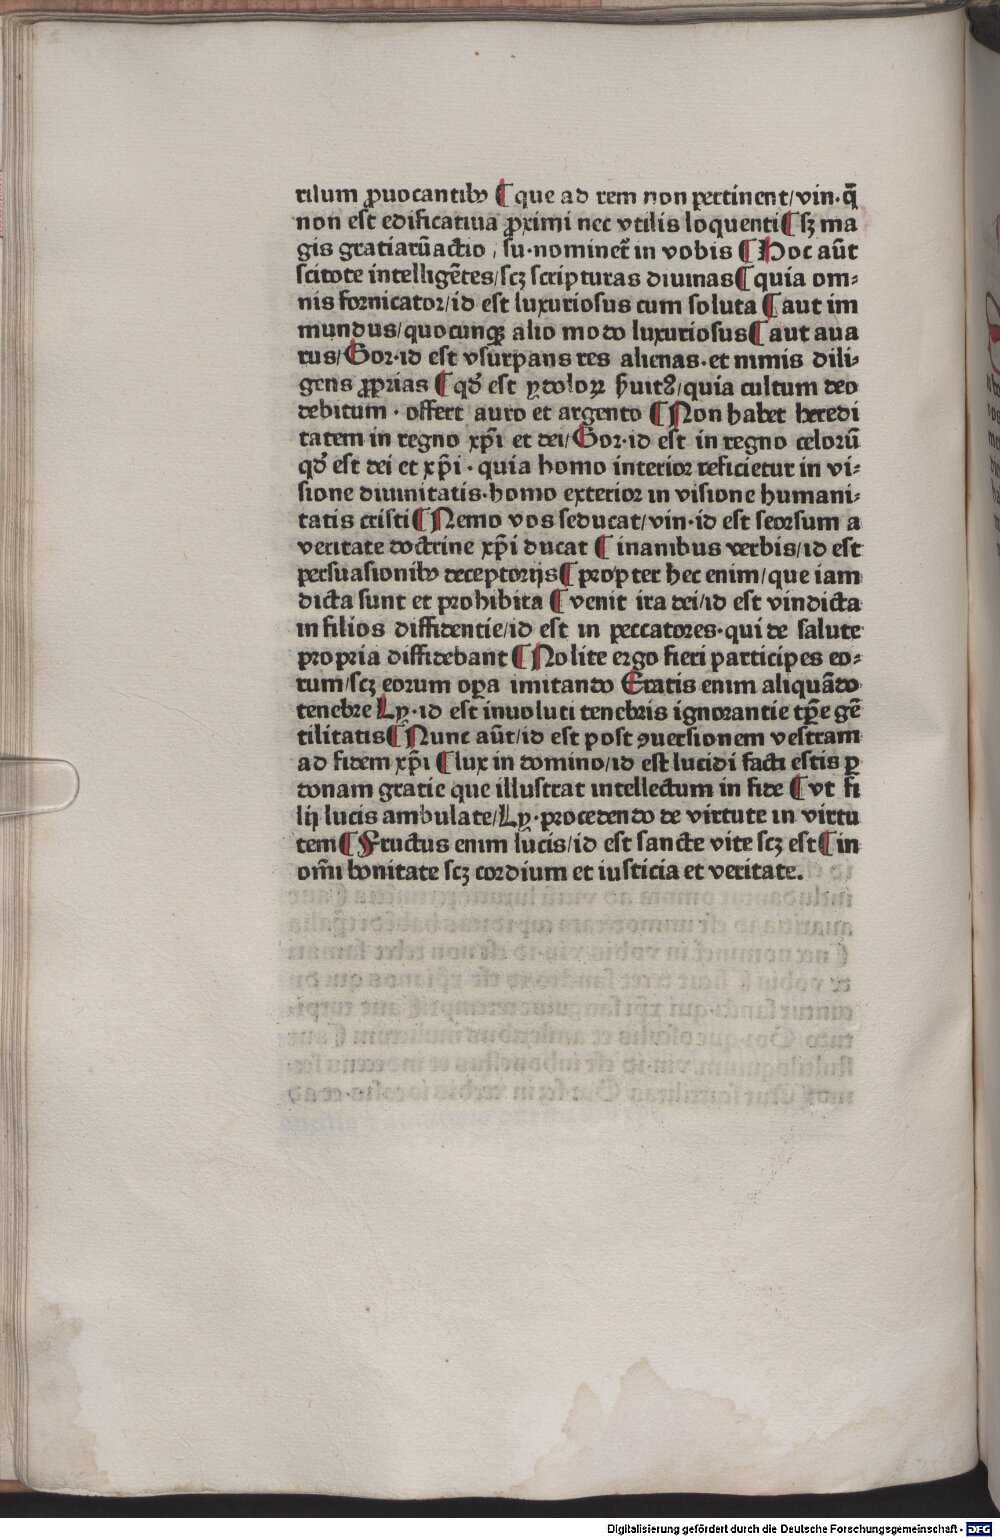 risum ꝓuocantibꝰ ¶ que ad rem non pertinent/vin·q̄
non est edificatiua ꝓximi nec vtilis loquenti ¶ sꝫ ma
gis gratiarū actio , su·nominet᷑ in vobis ¶ Hoc aūt
scitote intelligētes/scꝫ scripturas diuinas ¶ quia om⸗
nis fornicator/id est luxuriosus cum soluta ¶ aut im
mundus/quocunqꝫ alio modo luxuriosus ¶ aut aua
rus/Gor·id est vsurpans res alienas·et nimis dili⸗
gens ꝓprias ¶ qd̄ est ydoloꝝ ẜuitꝰ/quia cultum deo
debitum · offert auro et argento ¶ Non habet heredi
tatem in regno xp̄i et dei/Gor·id est in regno celorū
qd̄ est dei et xp̄i · quia homo interior reficietur in vi⸗
sione diuinitatis·homo exterior in visione humani⸗
tatis cristi ¶ Nemo vos seducat/vin·id est seorsum a
veritate doctrine xp̄i ducat ¶ inanibus verbis/id est
persuasionibꝰ deceptorijs ¶ propter hec enim/que iam
dicta sunt et prohibita ¶ venit ira dei/id est vindicta
in filios diffidentie/id est in peccatores·qui de salute
propria diffidebant ¶ Nolite ergo fieri participes eo⸗
rum/scꝫ eorum oꝑa imitando Eratis enim aliquādo
tenebre Ly·id est inuoluti tenebris ignorantie tꝑe gē
tilitatis ¶ Nunc aūt/id est post ꝯuersionem vestram
ad fidem xp̄i ¶ lux in domino/id est lucidi facti estis ꝑ
donam gratie que illustrat intellectum in fide ¶ vt fi
lij lucis ambulate/Ly·procedendo de virtute in virtu
tem ¶ Fructus enim lucis/id est sancte vite scꝫ est ¶ in
om̄i bonitate scꝫ cordium et iusticia et veritate.
Digitalisierung gefördert durch die Deutsche Forschungsgemeinschaft - DFG